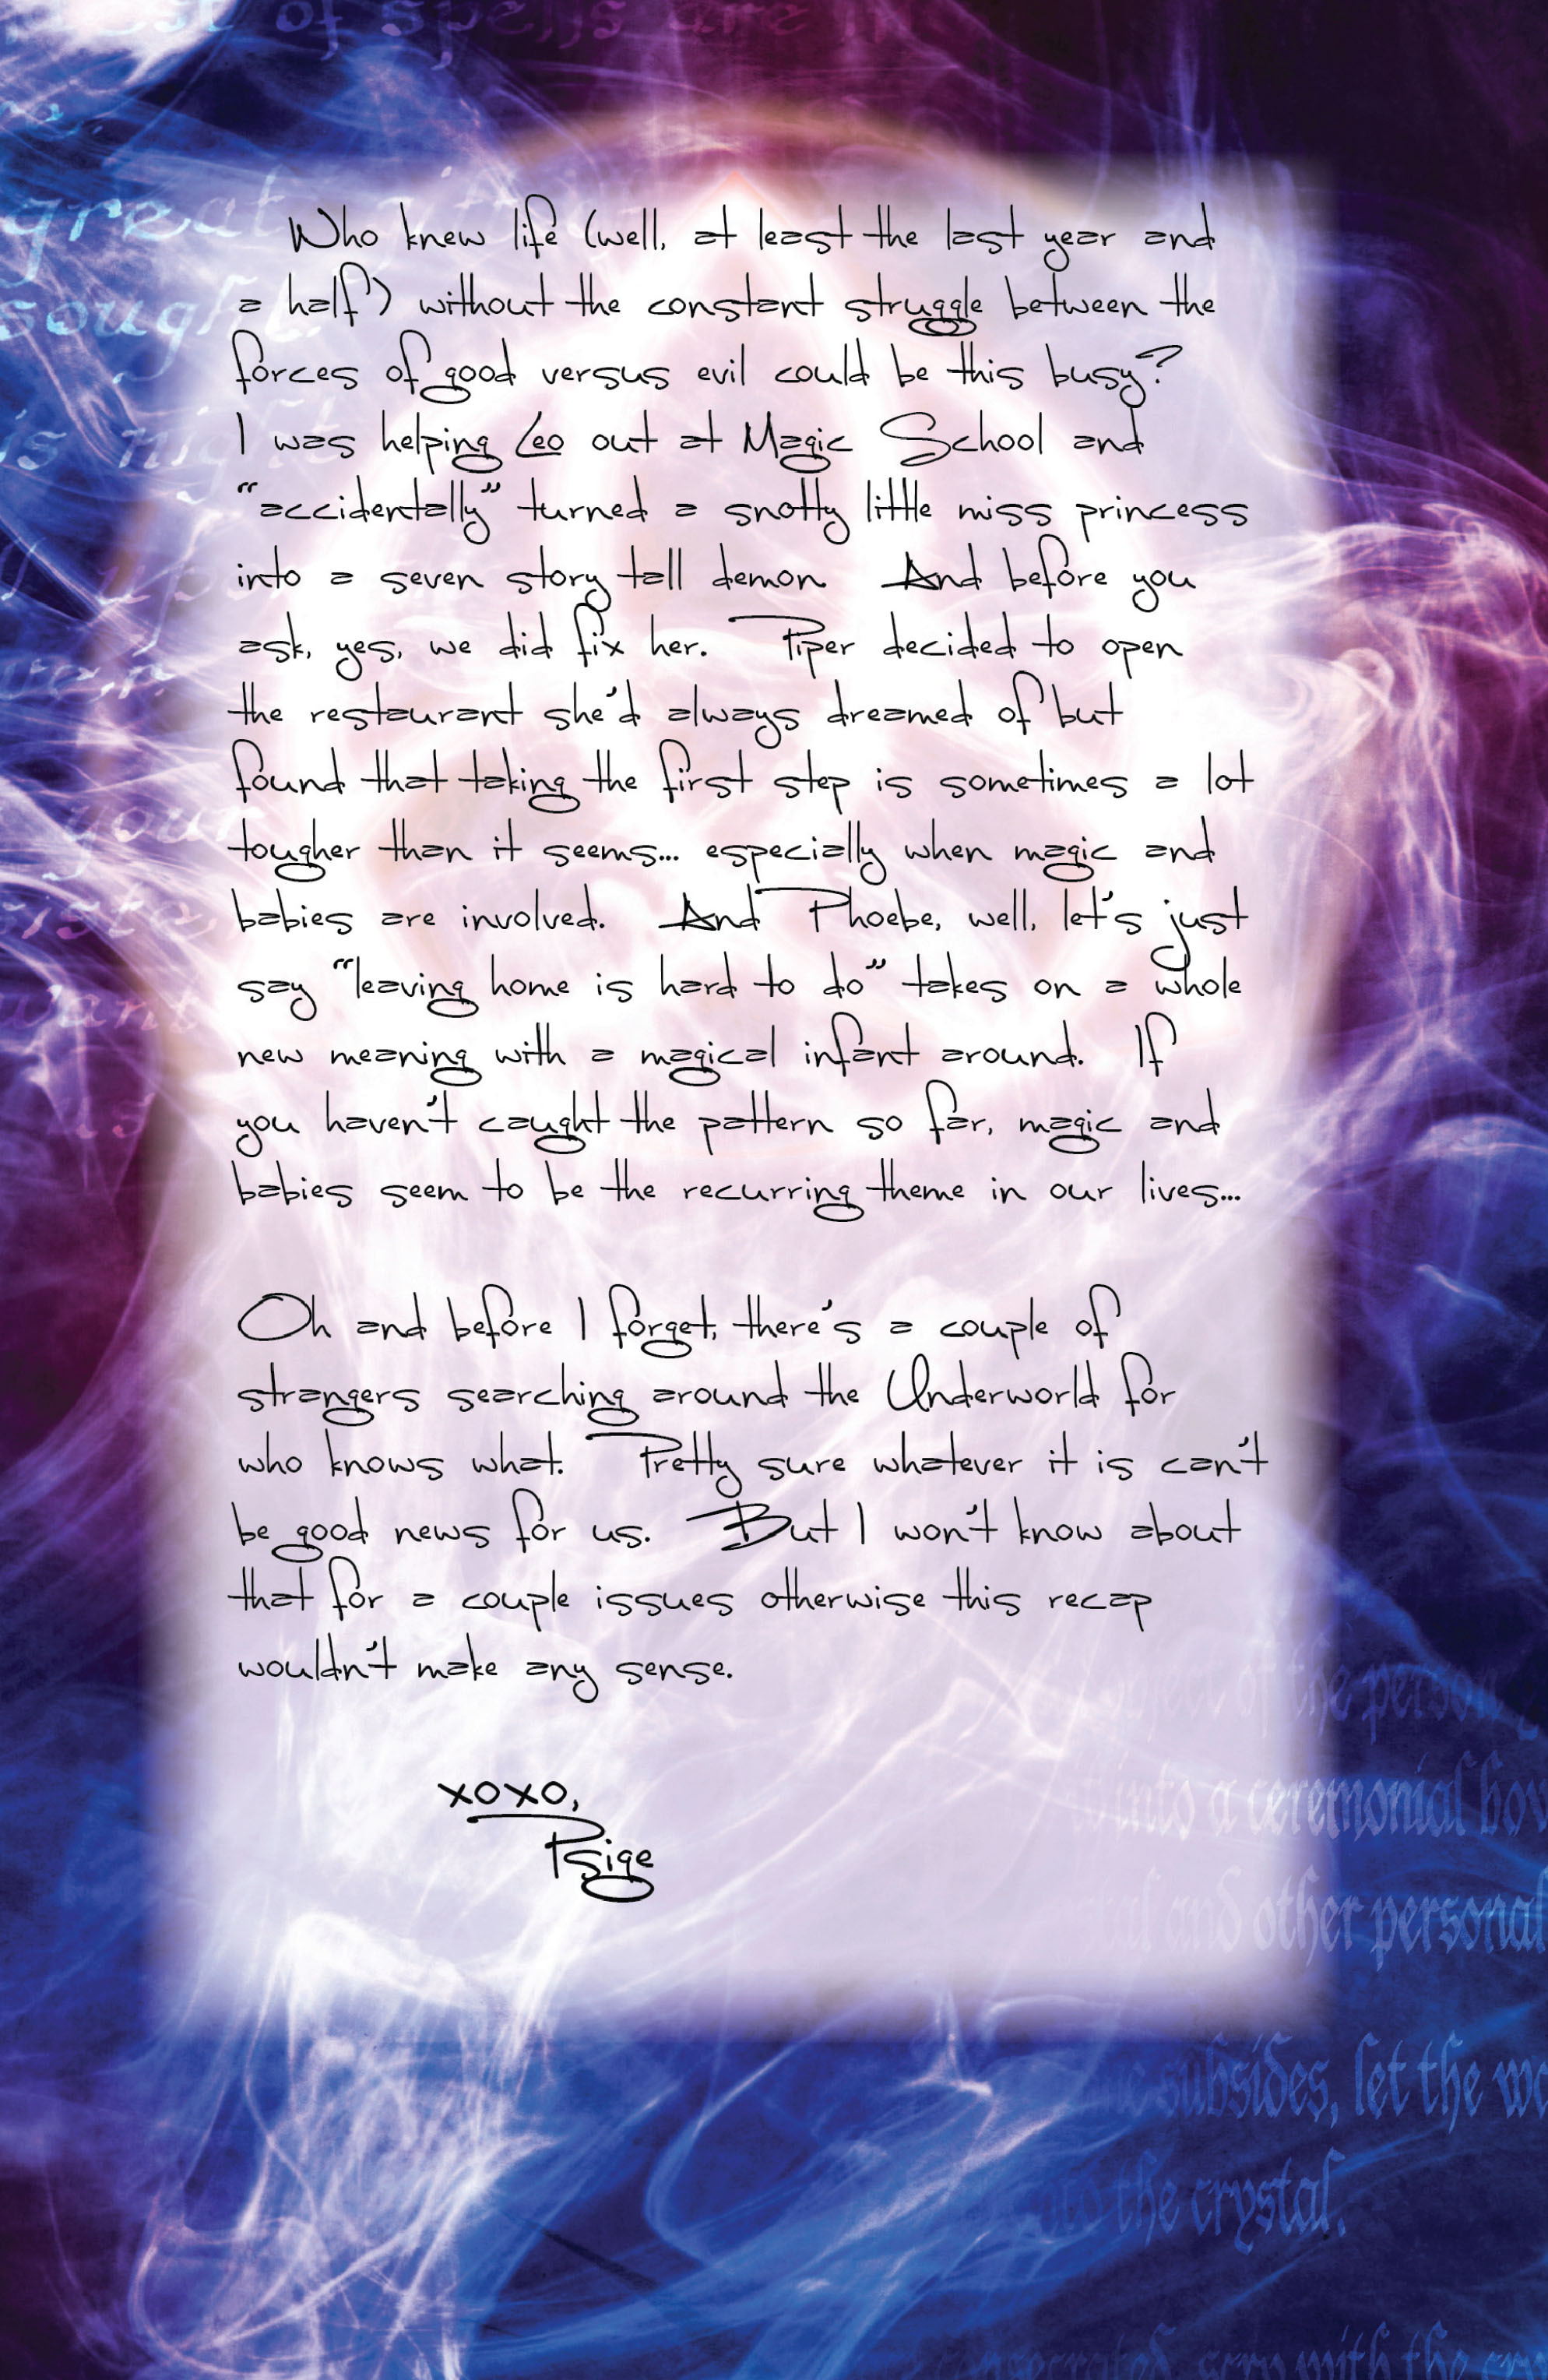 of spells are in
great
sough
is
Who knew life (well, at least the last year and
a half) without the constant struggle between the
forces of good versus evil could be this busy?
I was helping Leo out at Magic School and
"accidentally" turned a snotty little miss princess
into a seven story tall demon. And before you
ask, yes, we did fix her. Piper decided to open
the restaurant she'd always dreamed of but
found that taking the first step is sometimes a lot
tougher than it seems... especially when magic and
babies are involved. And Phoebe, well, let's just
say "leaving home is hard to do" takes on a whole
new meaning with a magical infant around. If
you haven't caught the pattern so far, magic and
babies seem to be the recurring theme in our lives...
Oh and before I forget, there's a couple of
strangers searching around the Underworld for
who knows what. Pretty sure whatever it is can't
be good news for us. But I won't know about
that for a couple issues otherwise this recap
wouldn't make any sense.
xoxo,
Paige
your
want
is
the person
into a ceremonial bow
and other personal
subsides, let the wa
the crystal.
with the